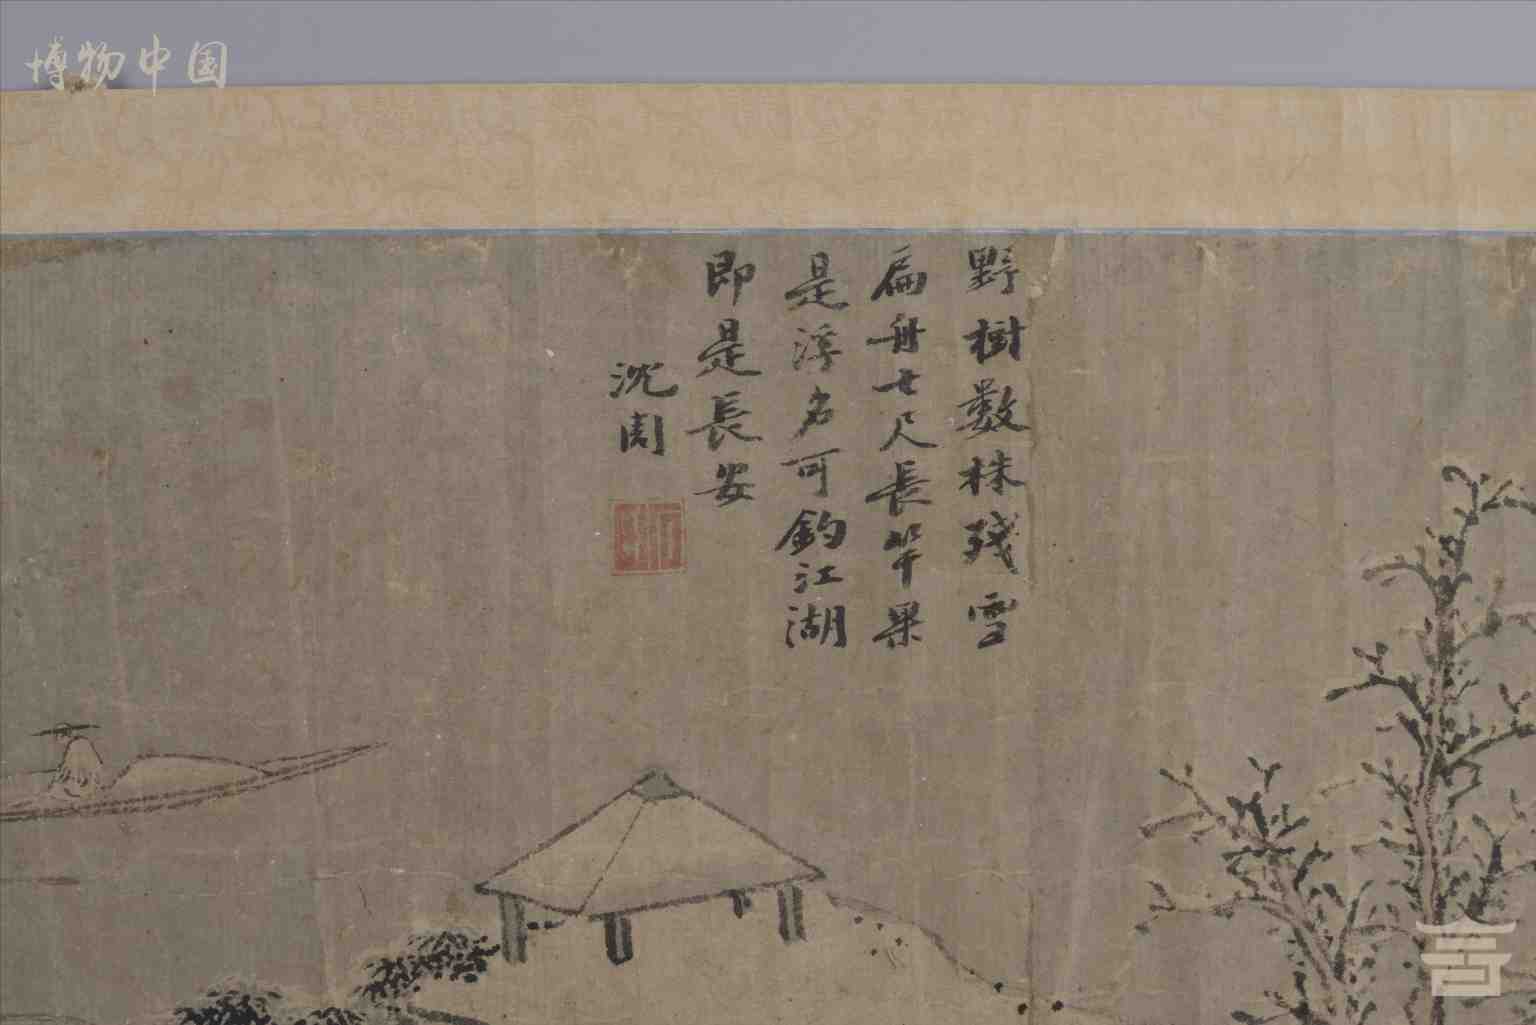 博物中国
野樹數株殘雪
扁舟七尺長竿果
是浮名可釣江湖
即是長安
沈周